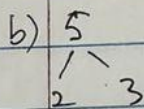 b) 5
2 3